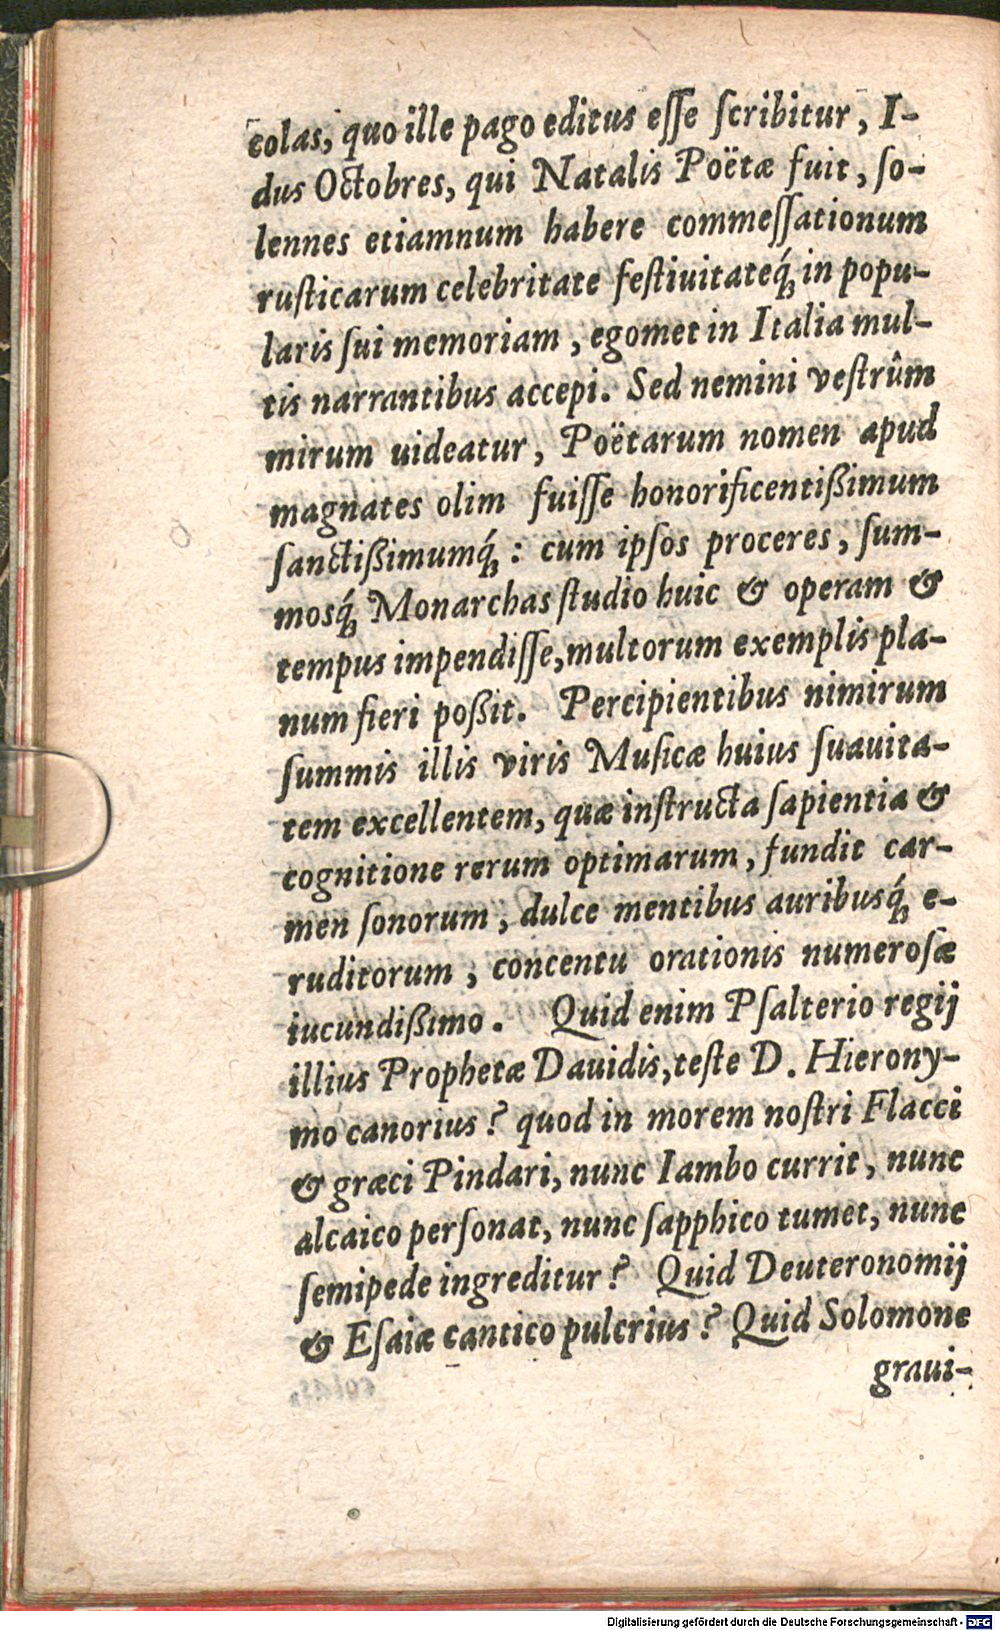 colas, quo ille pago editus eſſe ſcribitur, I-
dus Octobres, qui Natalis Poëtæ fuit, ſo-
lennes etiamnum habere commeſſationum
ruſticarum celebritate feſtiuitateq́ꝫ in popu-
laris ſui memoriam, egomet in Italia mul-
tis narrantibus accepi. Sed nemini veſtrûm
mirum uideatur, Poëtarum nomen apud
magnates olim fuiſſe honorificentißimum
ſanctißimumq́ꝫ: cum ipſos proceres, ſum-
mosq́ꝫ Monarchas ſtudio huic & operam &
tempus impendiſſe, multorum exemplis pla-
num fieri poßit. Percipientibus nimirum
ſummis illis viris Muſicæ huius ſuauita-
tem excellentem, quæ inſtructa ſapientia &
cognitione rerum optimarum, fundit car-
men ſonorum, dulce mentibus auribusq́ꝫ e-
ruditorum, concentu orationis numeroſæ
iucundißimo. Quid enim Pſalterio regij
illius Prophetæ Dauidis, teſte D. Hierony-
mo canorius? quod in morem noſtri Flacci
& græci Pindari, nunc Iambo currit, nunc
alcaico perſonat, nunc ſapphico tumet, nunc
ſemipede ingreditur? Quid Deuteronomij
& Eſaiæ cantico pulcrius? Quid Solomone
graui-
Digitalisierung gefördert durch die Deutsche Forschungsgemeinschaft - DFG